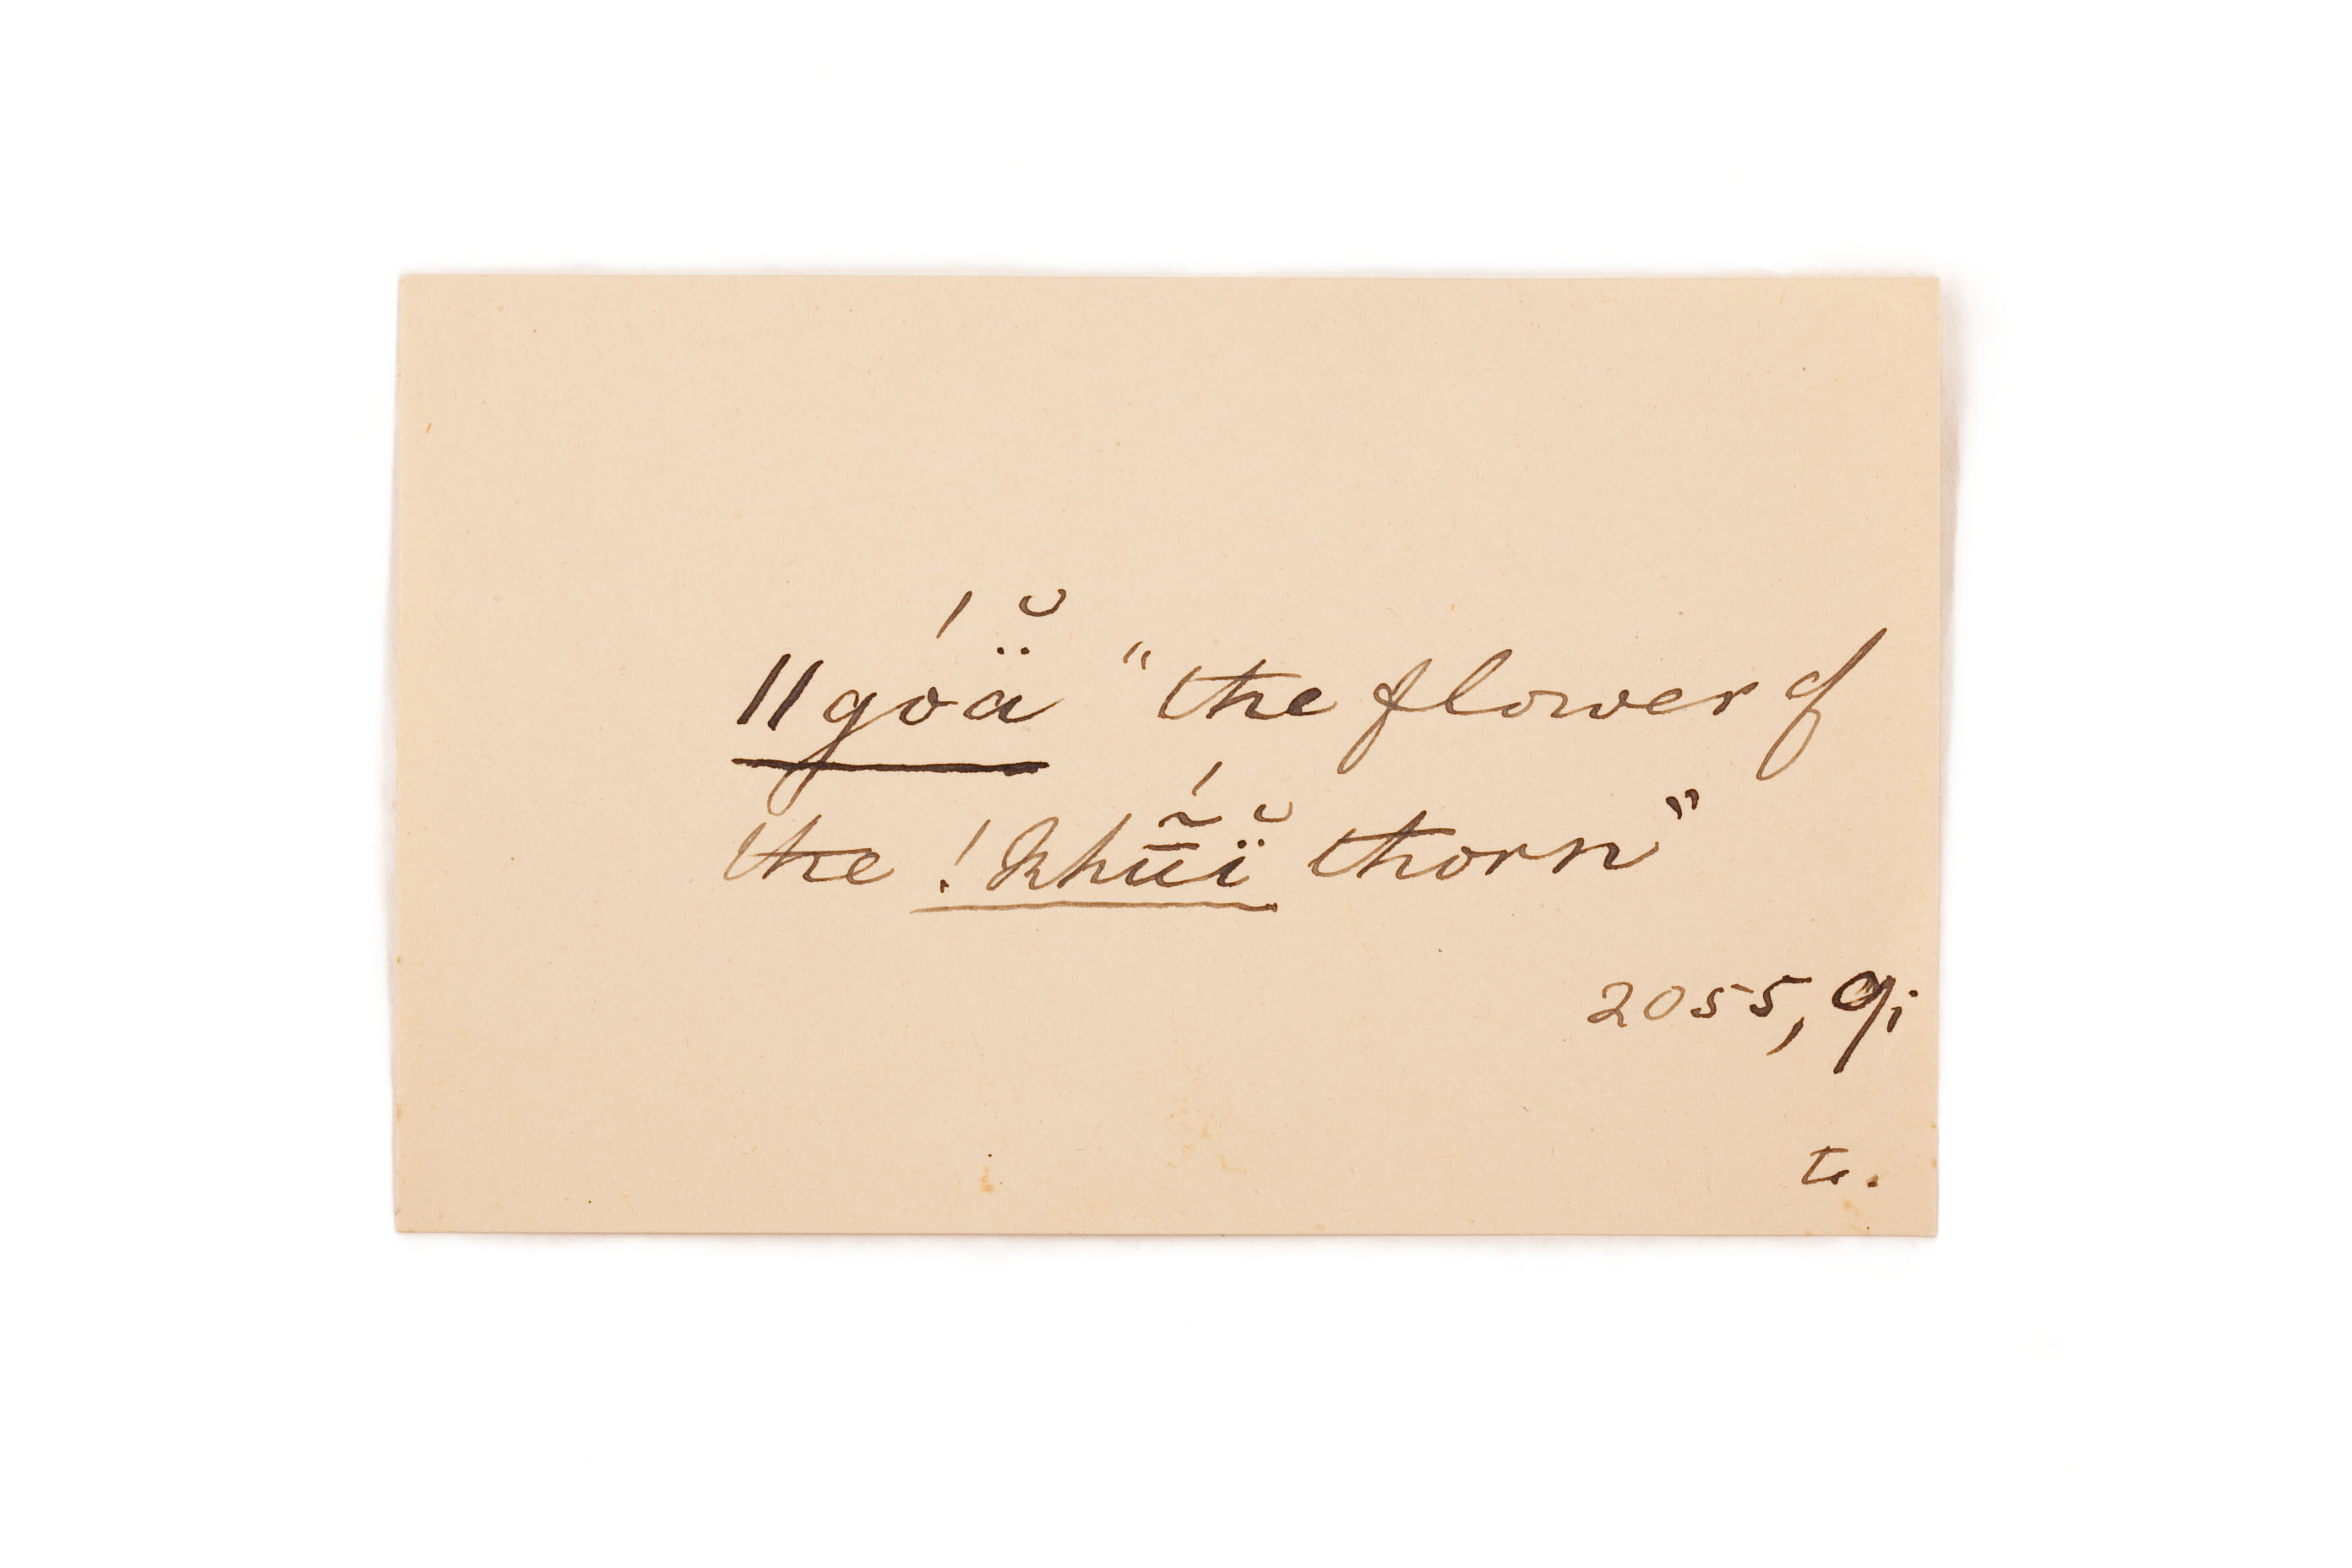 ǁgóä̆ "the flower of
the !khṹ̄ï̆ thorn"
2055, 9;
t.